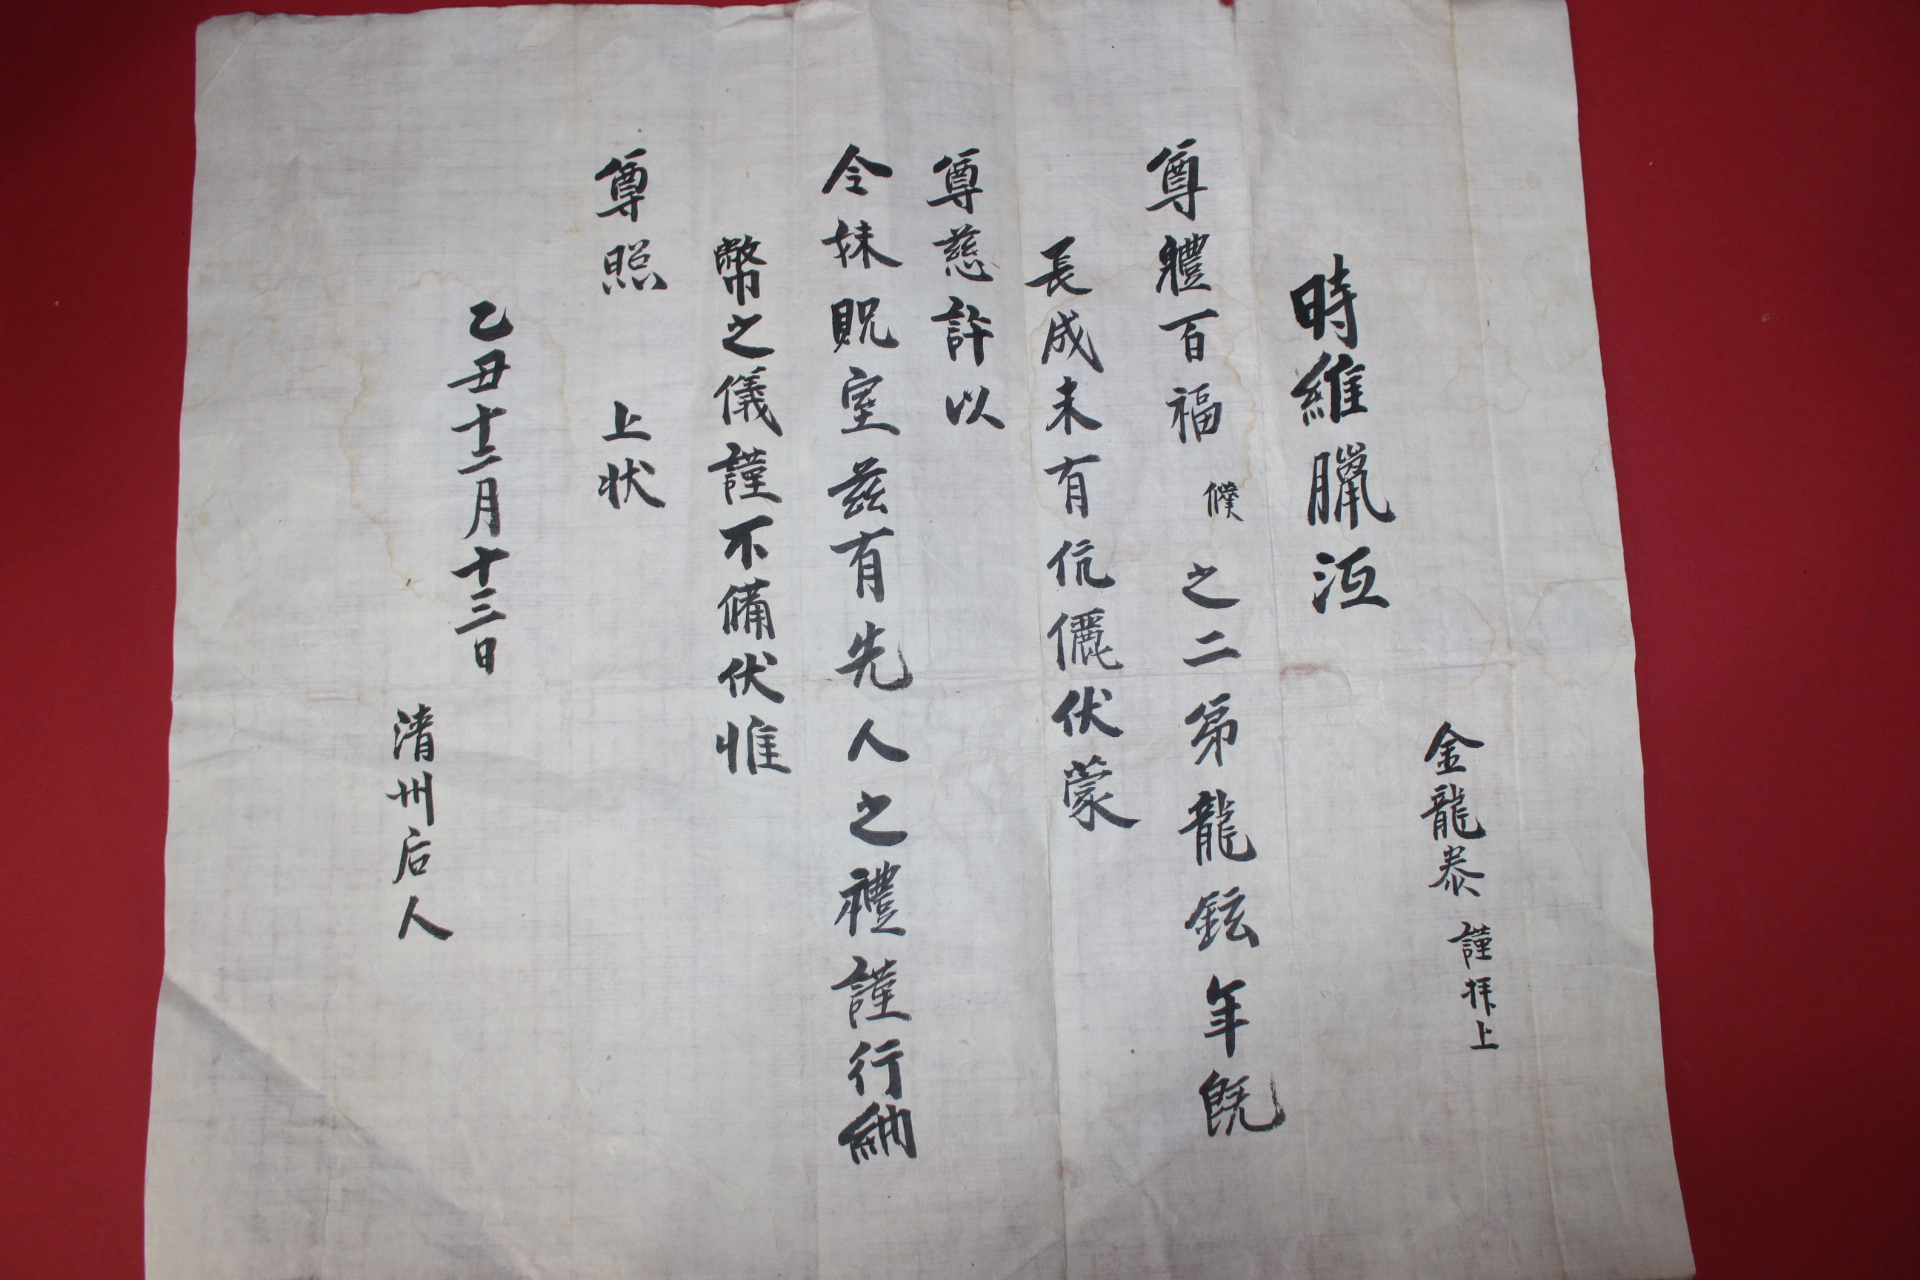 金龍泰 謹拜上
時維臘沍
尊體百福 僕之二弟龍鉉年旣
長成未有伉儷伏蒙
尊慈許以
令妹貺室茲有先人之禮謹行納
幣之儀謹不備伏惟
尊照 上狀
乙丑十二月十三日
清州后人